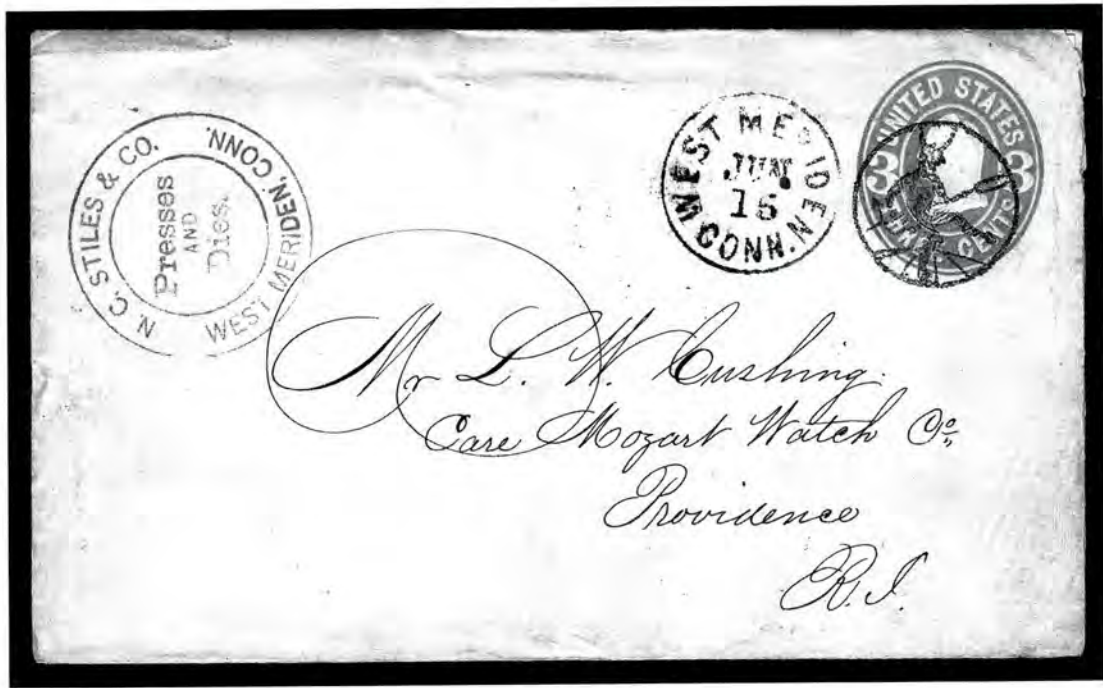 N. C. STILES & CO.
WEST MERIDEN, CONN.
Presses
AND
Dies.
WEST MERIDEN
CONN.
JUN
15
UNITED STATES
3 3
THREE CENTS
Mr L. W. Cushing.
Care Mozart Watch Co.
Providence
R. I.